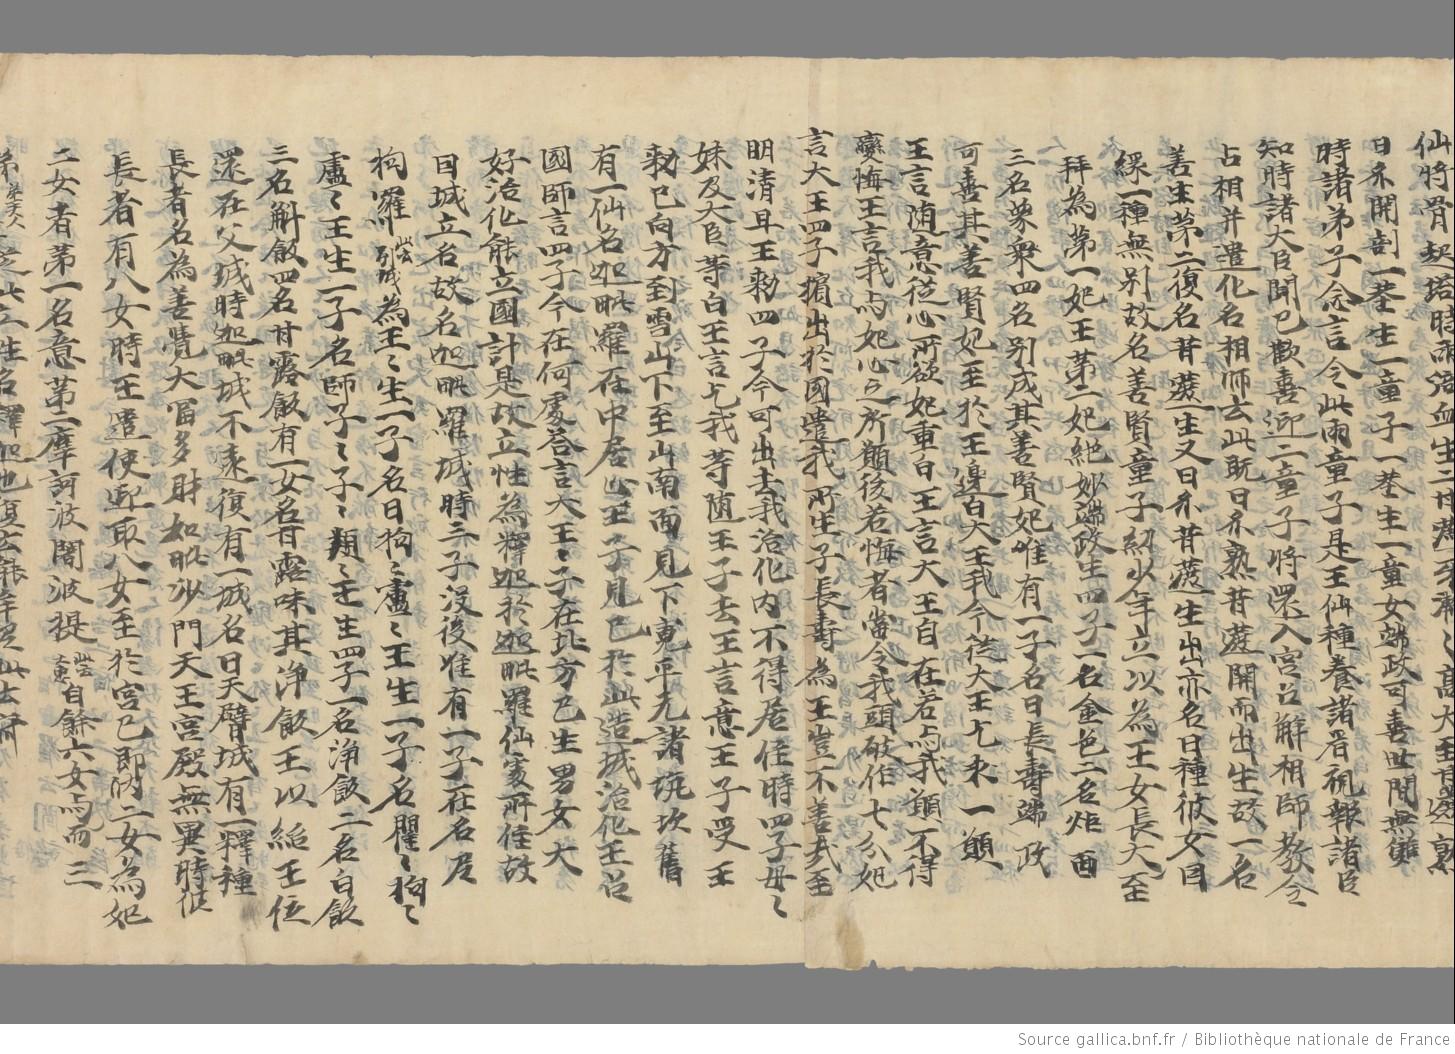 仙將骨
日炙開剖一莖生一童子一莖生一童女端政可善世間無雙
時諸弟子念言今此兩童子是王仙種養諸看視報諸臣
知時諸大臣聞已歡喜迎二童子將還入宮召解相師教令
占相并遣化名相師云此既日炙熟甘蔗開而出生故一名
善生苐二復名甘蔗生又日炙甘蔗生出亦名日種彼女因
緣一種無別故名善賢童子紹少年立以為王女長大至
拜為苐一妃王苐二妃絕妙端政生四子一名金色二名炬面
三名蒙衆四名別成其善賢妃唯有一子名曰長壽端政
可喜其善賢妃至於王邊白大王我今從大王乞求一願
王言随意從心所欲妃重白王言大王自在若与我願不得
變悔王言我与妃心之所願後若悔者當令我頭破作七分妃
言大王四子擯出於國遣我所生子長壽為王豈不善哉至
明清旦王勑四子今可出去我治化內不得居住時四子母〻
妹及大臣等白王言乞我等随王子去王言意王子受王
勑已向方到雪山下至山南面見下寬平无諸坑坎舊
有一仙名迦毗羅在中居心王子見已於此造城治化王召
國師言四子今在何處荅言大王〻子在北方已生男女大
好治化能立國計是故立性為釋迦於迦毗羅仙處所住故
因城立名故名迦毗羅城時三子没後唯有一子在名尼
拘羅 為王〻生一子名曰拘〻盧〻王生一子名瞿〻拘〻
盧〻王生一子名師子〻子〻頰〻王生四子一名淨飯二名白飯
三名斛飯四名甘露飯有一女名甘露味其淨飯王以紹王位
還在父城時迦毗城不遠復有一城名曰天臂城有一釋種
長者名為善覺大冨多財如毗沙門天王宮殿無異時彼
長者有八女時王遣使迎取八女至於宮已即納二女為妃
二女者苐一名意苐二摩訶波闍波提 自餘六女与而三
苐